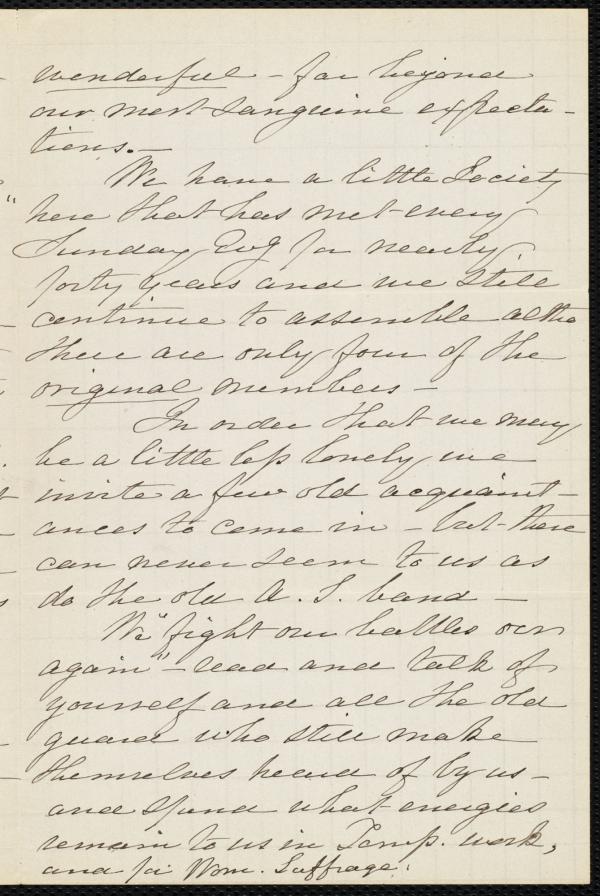 wonderful – far beyond
our most sanguine expecta-
tions.—
We have a little Society
here that has met every
Sunday Evg for nearly
forty years and we still
continue to assemble altho
there are only four of the
original members –
In order that we may
be a little less lonely we
invite a few old acquaint-
ances to come in – but there
can never seem to us as
do the old A. S. band –
We "fight our battles oer
again" – read and talk of
yourself and all the old
guard who still make
themselves heard of by us –
and spend what energies
remain to us in Temp. work,
and for Wom. Suffrage.